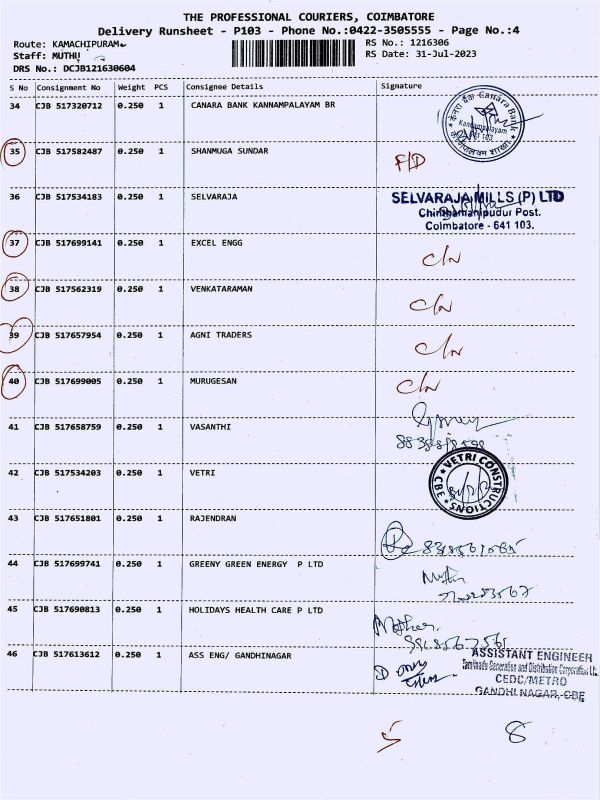 THE PROFESSIONAL COURIERS, COIMBATORE
Delivery Runsheet - P103 - Phone No.:0422-3505555 - Page No.:4
Route: KAMACHIPURAM
RS No.: 1216306
Staff: MUTHU
RS Date: 31-Jul-2023
DRS No.: DCJB121630604
S No Consignment No Weight PCS Consignee Details Signature
34 CJB 517320712 0.250 1 CANARA BANK KANNAMPALAYAM BR
Canara Bank
Kannampalayam
641 103
35 CJB 517582487 0.250 1 SHANMUGA SUNDAR F/D
36 CJB 517534183 0.250 1 SELVARAJA
SELVARAJA MILLS (P) LTD
Chinthamanipudur Post.
Coimbatore - 641 103.
37 CJB 517699141 0.250 1 EXCEL ENGG
38 CJB 517562319 0.250 1 VENKATARAMAN
39 CJB 517657954 0.250 1 AGNI TRADERS
40 CJB 517699005 0.250 1 MURUGESAN
41 CJB 517658759 0.250 1 VASANTHI
42 CJB 517534203 0.250 1 VETRI
VETRI CONSTRUCTIONS
CBE
43 CJB 517651801 0.250 1 RAJENDRAN
44 CJB 517699741 0.250 1 GREENY GREEN ENERGY P LTD
45 CJB 517690813 0.250 1 HOLIDAYS HEALTH CARE P LTD
46 CJB 517613612 0.250 1 ASS ENG/ GANDHINAGAR
ASSISTANT ENGINEER
Tamilnadu Generation and Distribution Corporation Lt.
CEDC/METRO
GANDHI NAGAR, CBE
5 8